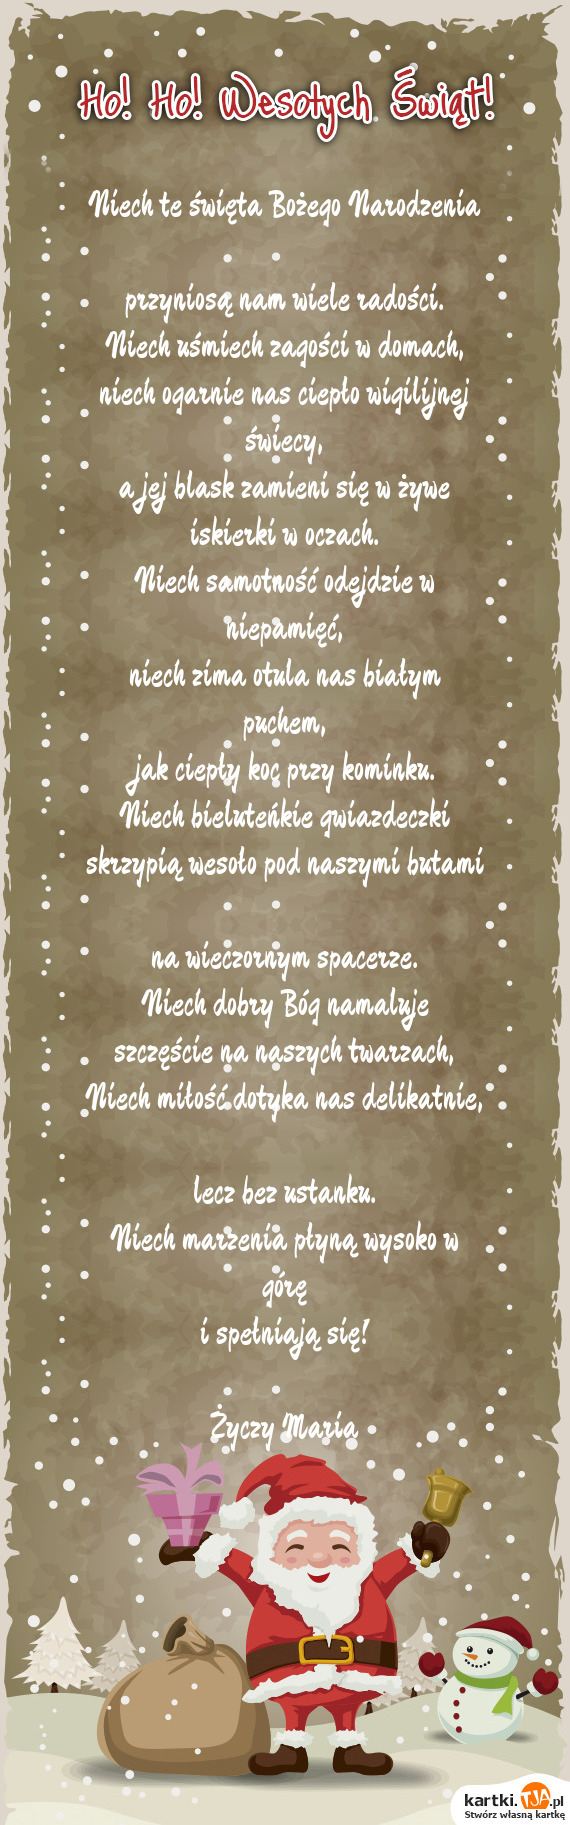 Ho! Ho! Wesołych Świąt!
Niech te święta Bożego Narodzenia
przyniosą nam wiele radości.
Niech uśmiech zagości w domach,
niech ogarnie nas ciepło wigilijnej
świecy,
a jej blask zamieni się w żywe
iskierki w oczach.
Niech samotność odejdzie w
niepamięć,
niech zima otula nas białym
puchem,
jak ciepły koc przy kominku.
Niech bieluteńkie gwiazdeczki
skrzypią wesoło pod naszymi butami
na wieczornym spacerze.
Niech dobry Bóg namaluje
szczęście na naszych twarzach,
Niech miłość dotyka nas delikatnie,
lecz bez ustanku.
Niech marzenia płyną wysoko w
górę
i spełniają się!
Życzy Maria
kartki.TJA.pl
Stwórz własną kartkę